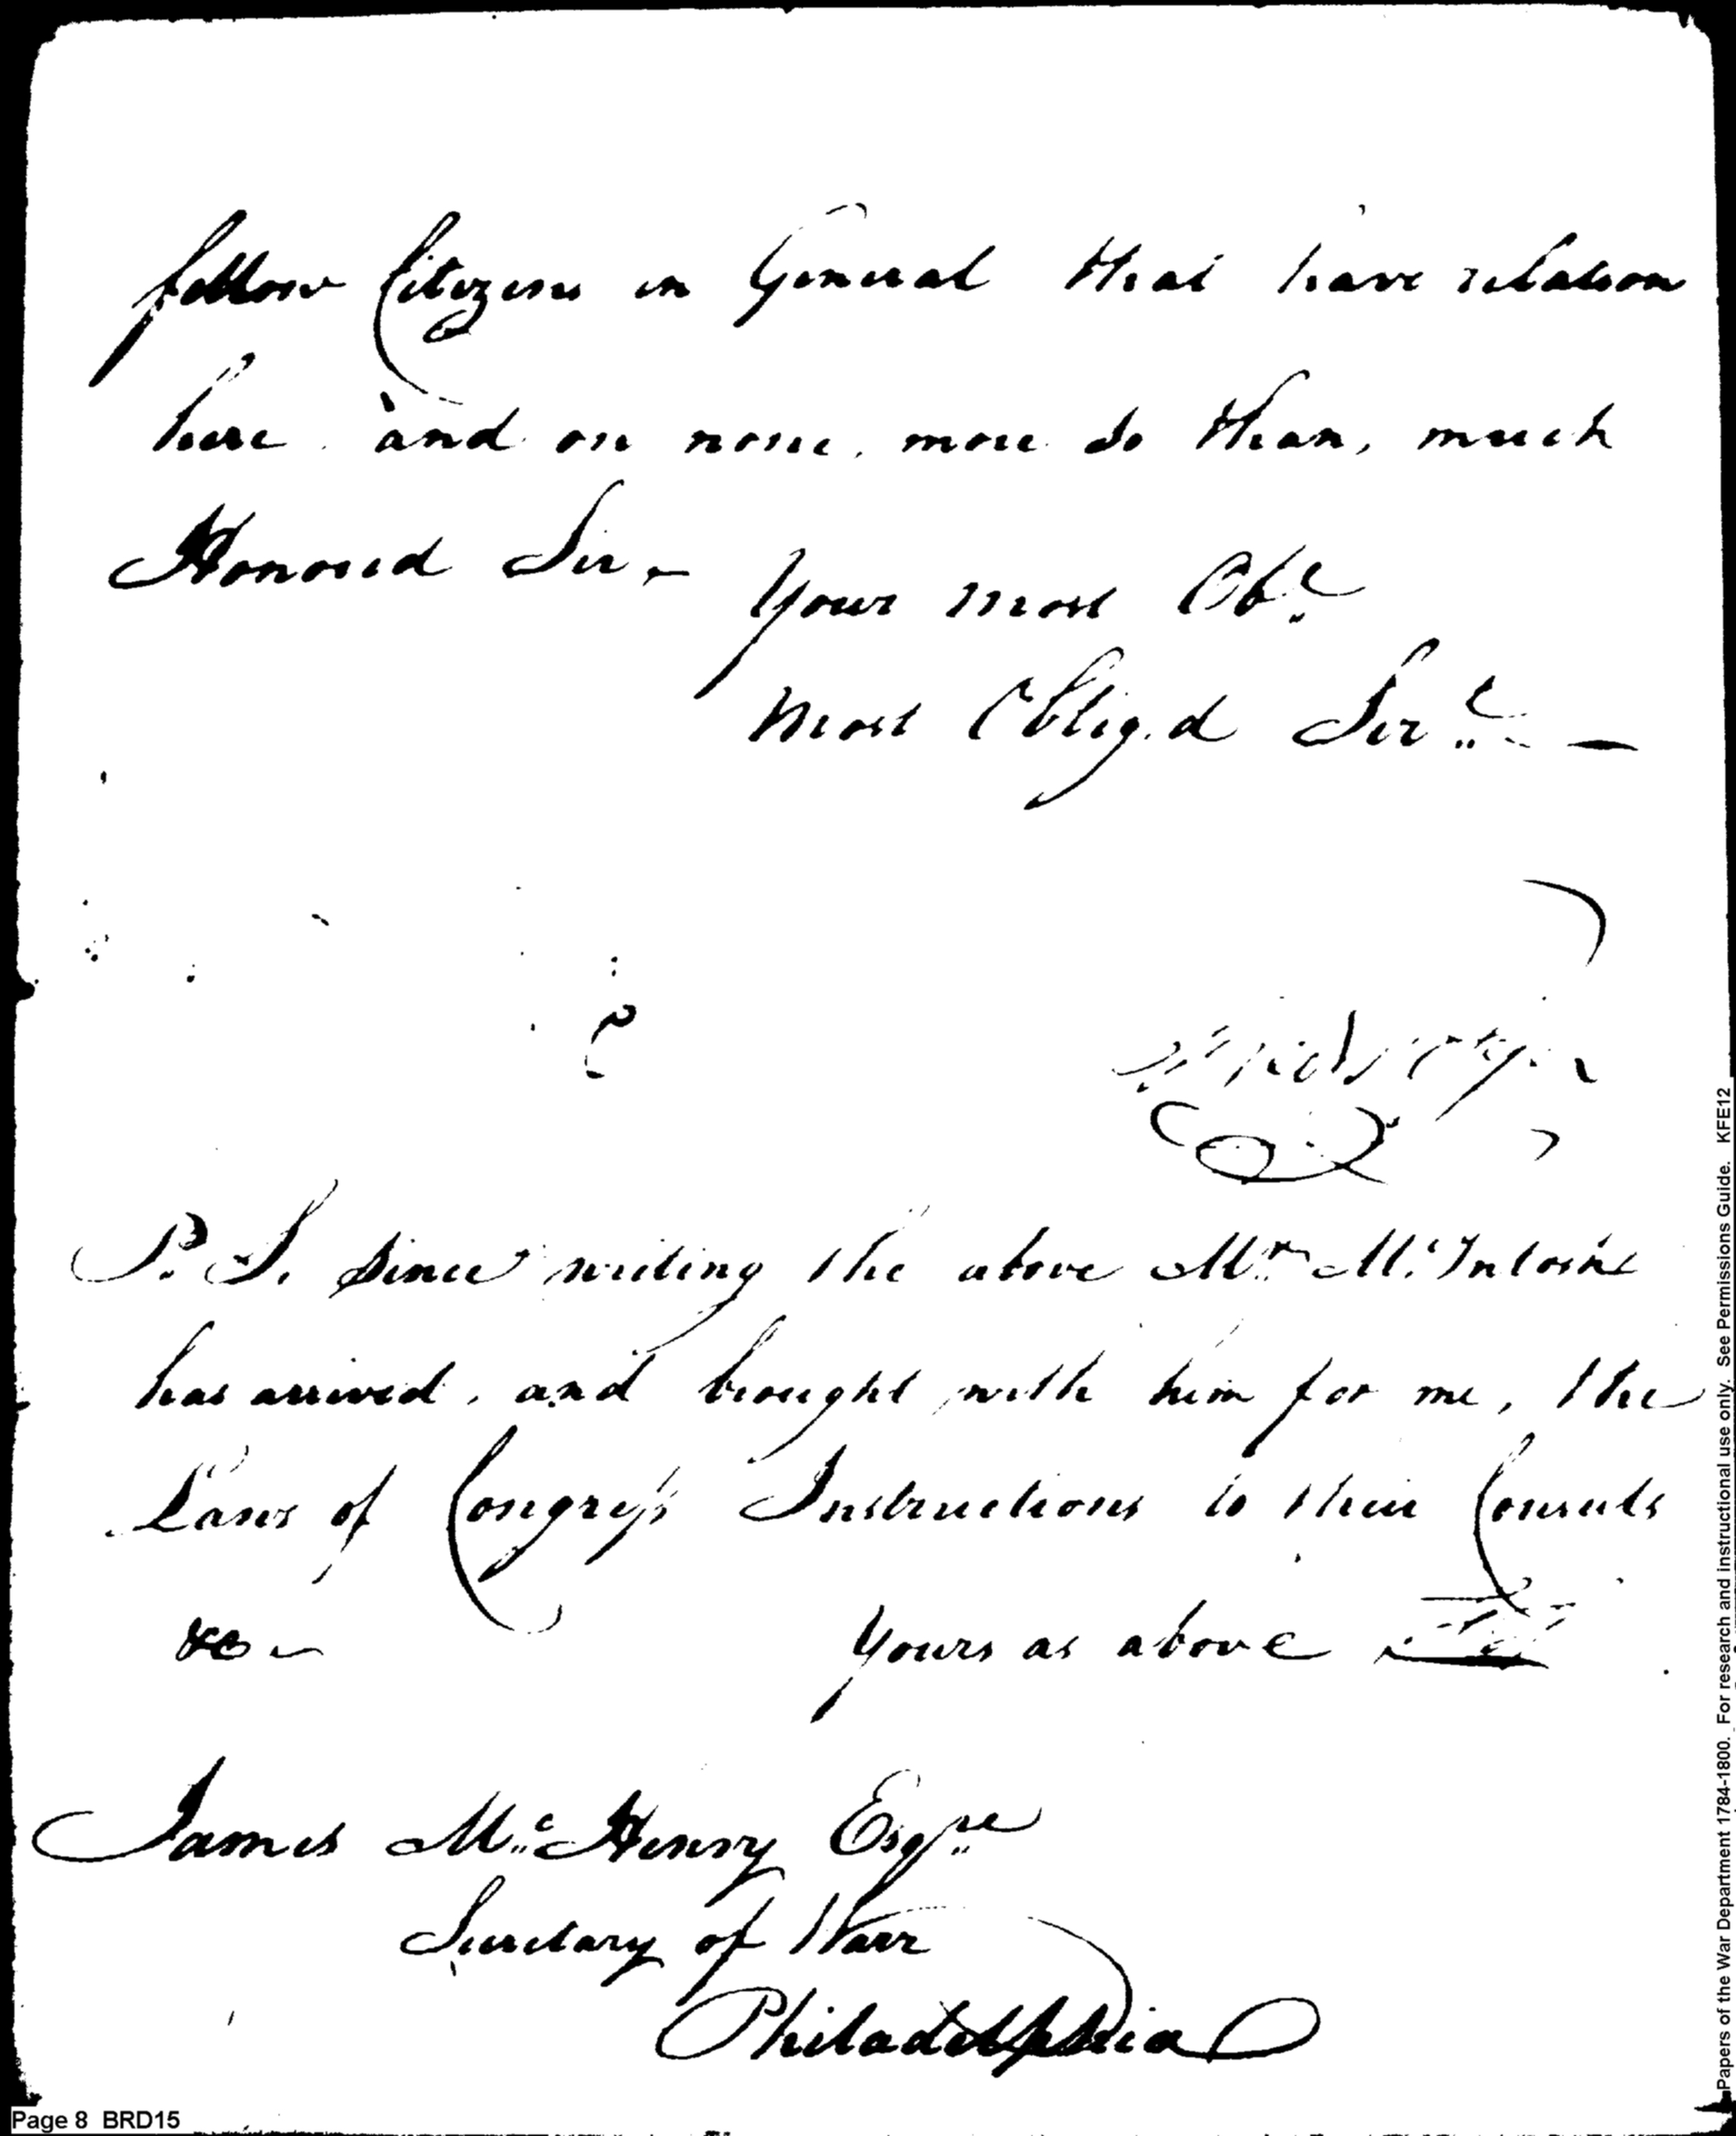 fellow Citizens in General that have relation
here and on none, more so than, much
Honored Sir -
Your most Obt.
Most Oblig.d Sert. —
P. S. Since writing the above Mr. Mc.Intosh
has arrived, and brought with him for me, the
Laws of Congress Instructions to their Consuls
&c -
Yours as above
James Mc.Henry Esqre
Secretary of Warr
Philadelphia
Page 8 BRD15
Papers of the War Department 1784-1800. For research and instructional use only. See Permissions Guide. KFE12